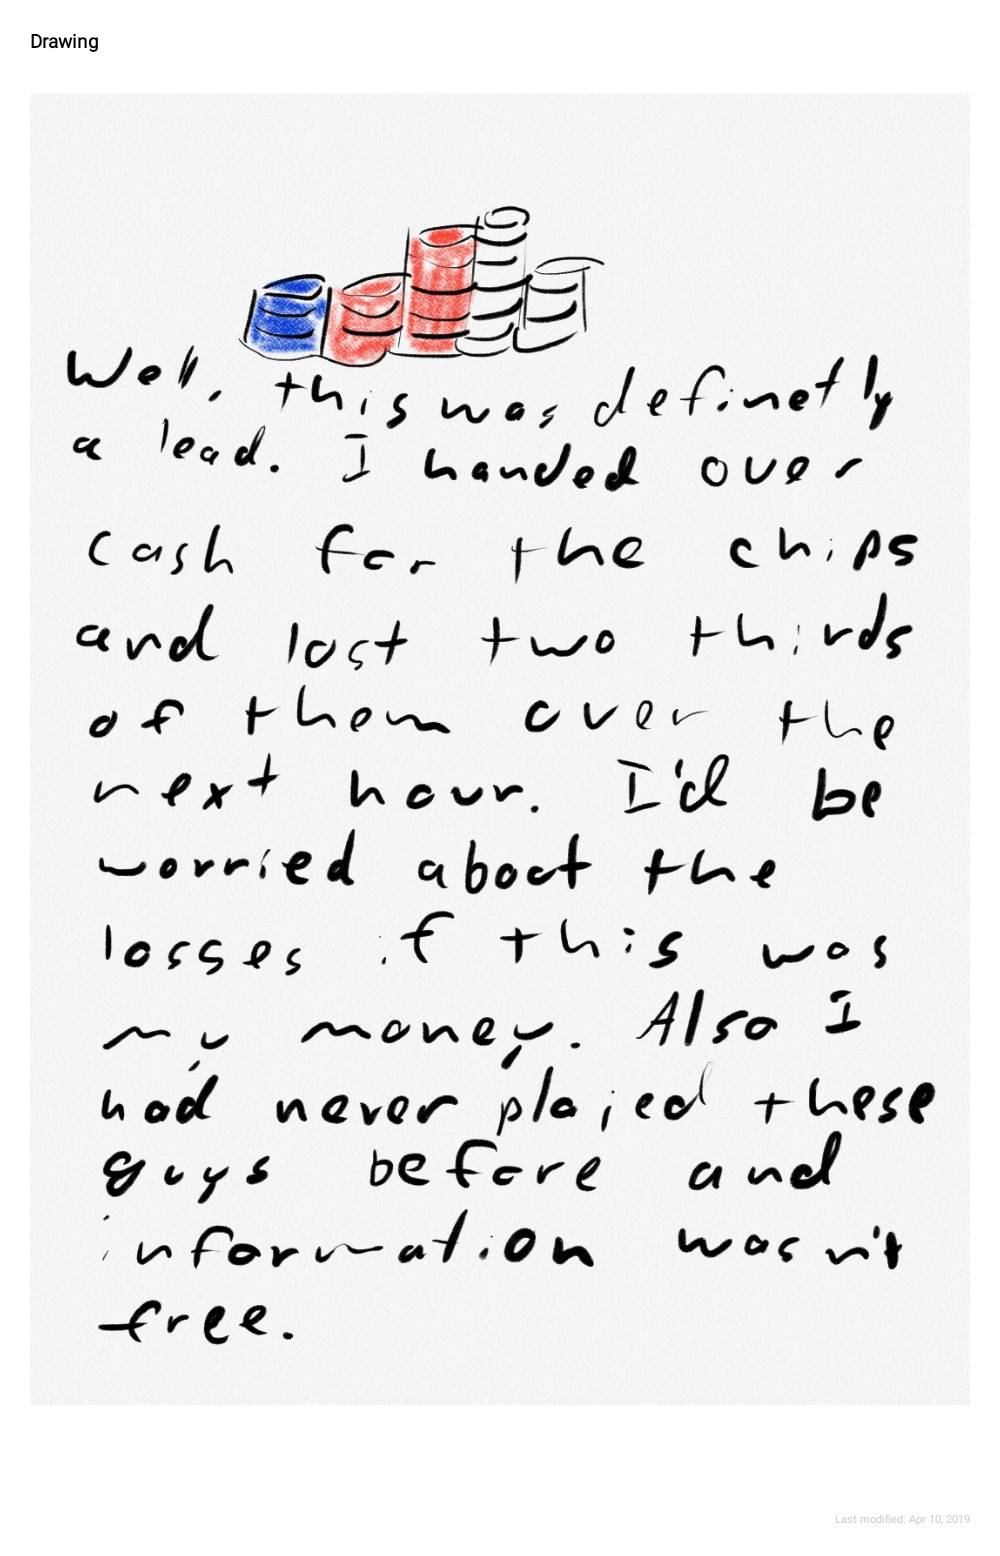 Drawing
Well, this was definetly
a lead. I handed over
cash for the chips
and lost two thirds
of them over the
next hour. I'd be
worried about the
losses if this was
my money. Also I
had never plaied these
guys before and
information wasn't
free.
Last modified: Apr 10, 2019